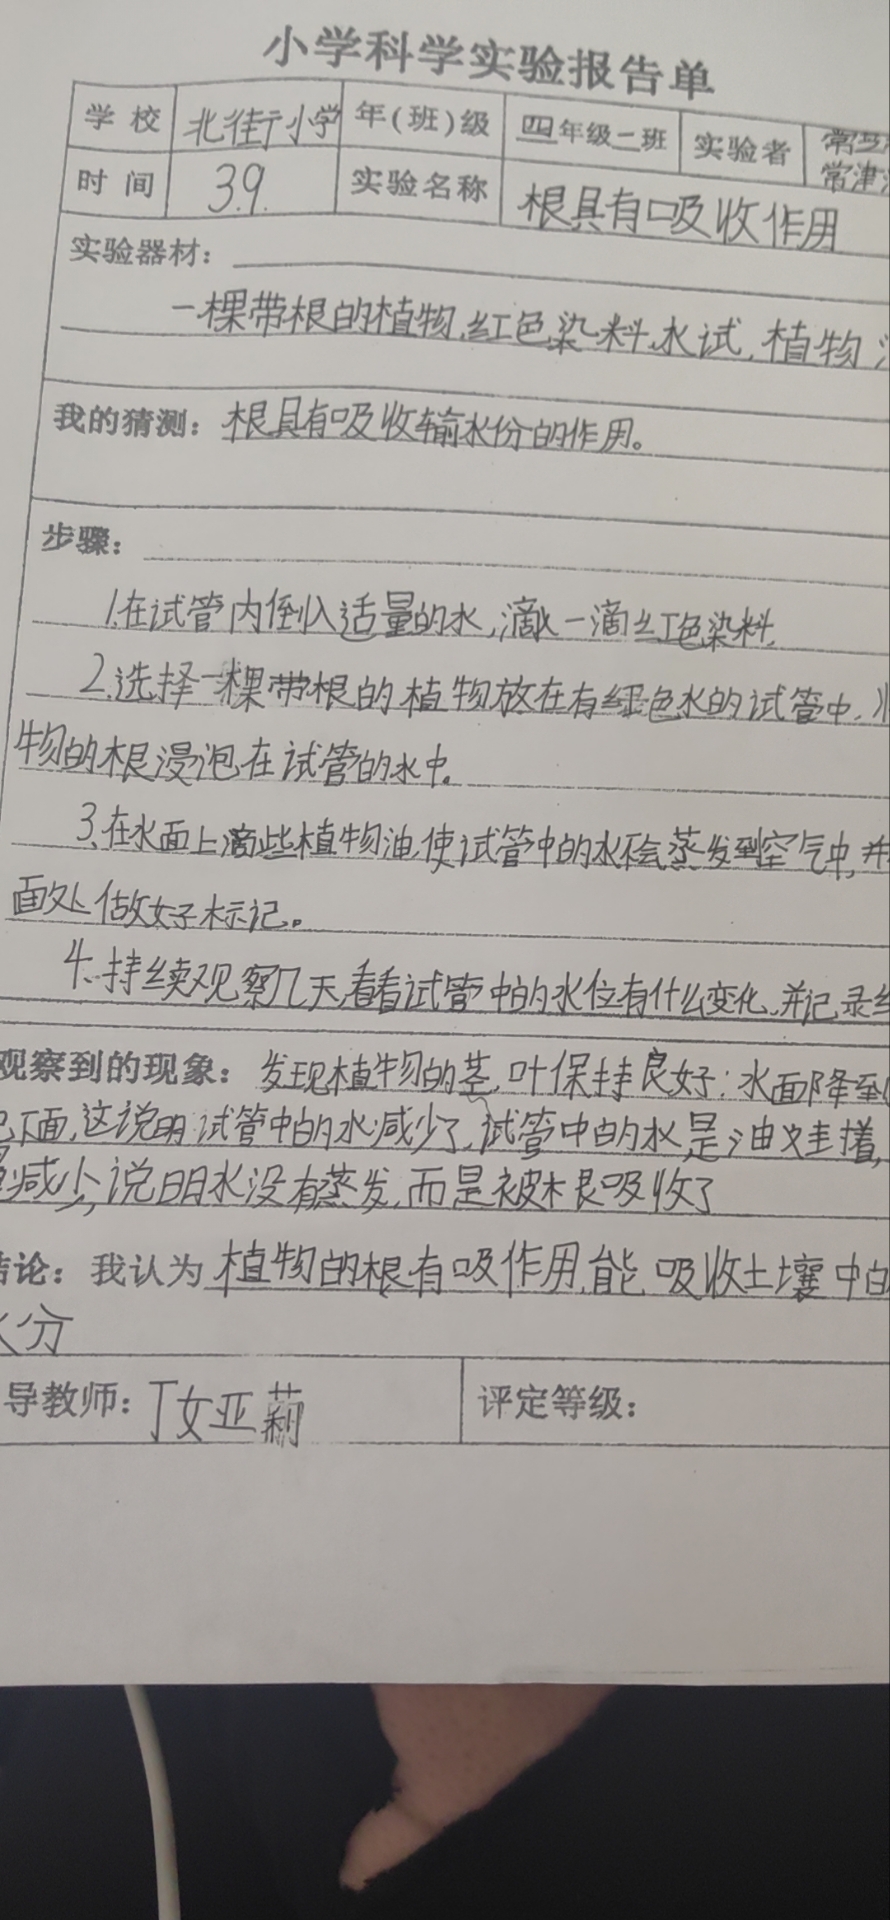 小学科学实验报告单
学校 北街小学 年(班)级 四年级二班 实验者 常
常津
时间 3.9. 实验名称 根具有吸收作用
实验器材：
一棵带根的植物、红色染料、水试、植物
我的猜测：根具有吸收输水份的作用。
步骤：
1.在试管内倒入适量的水，滴一滴红色染料。
2.选择一棵带根的植物放在有红色水的试管中，
物的根浸泡在试管的水中。
3.在水面上滴些植物油，使试管中的水不会蒸发到空气中，并
面处做好标记。
4.持续观察几天，看看试管中的水位有什么变化，并记录
观察到的现象：发现植物的茎，叶保持良好；水面降到
下面，这说明试管中的水减少了，试管中的水是油 着，
减少，说明水没有蒸发，而是被根吸收了
结论：我认为植物的根有吸作用，能吸收土壤中的
水分
导教师：丁女亚莉 评定等级：